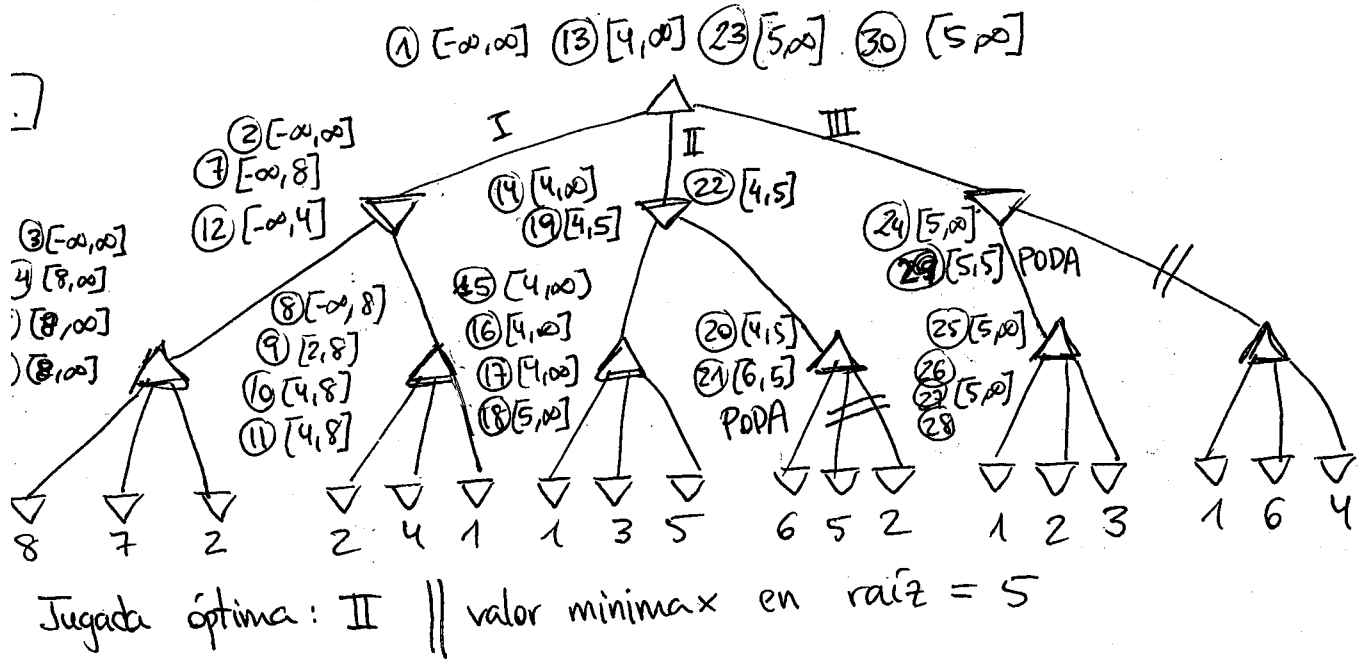 ① [-∞,∞] ⑬ [4,∞] ㉓ [5,∞] ㉚ [5,∞]
.]
I
II
III
② [-∞,∞]
⑦ [-∞,8]
⑫ [-∞,4]
⑭ [4,∞]
⑲ [4,5]
㉒ [4,5]
㉔ [5,∞]
㉙ [5,5] PODA
//
③ [-∞,∞]
4) [8,∞]
) [8,∞]
) [8,∞]
⑧ [-∞,8]
⑨ [2,8]
⑩ [4,8]
⑪ [4,8]
⑮ [4,∞)
⑯ [4,∞]
⑰ [4,∞]
⑱ [5,∞]
⑳ [4,5]
㉑ [6,5]
PODA
㉕ [5,∞]
㉖
㉗ [5,∞]
㉘
8 7 2 2 4 1 1 3 5 6 5 2 1 2 3 1 6 4
Jugada óptima: II || valor minimax en raíz = 5